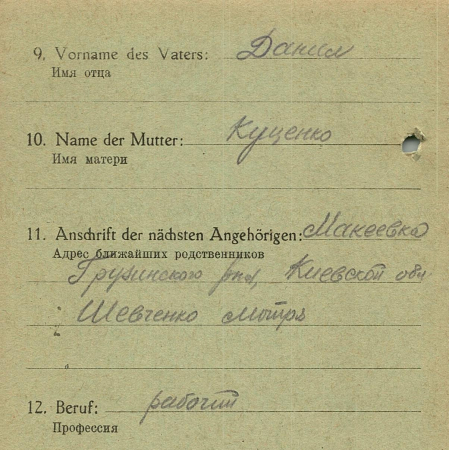 9. Vorname des Vaters: Данил
Имя отца
10. Name der Mutter: Куценко
Имя матери
11. Anschrift der nächsten Angehörigen: Макеевка
Адрес ближайших родственников
Грузинского Киевской обл
Шевченко Мотря
12. Beruf: рабочий
Профессия